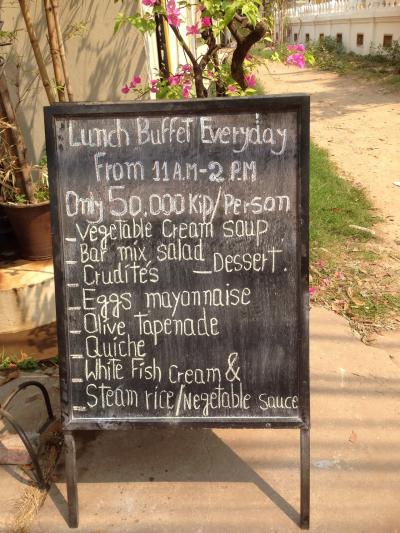 Lunch Buffet Everyday
From 11 A.M-2 P.M
Only 50.000 Kip/Person
_Vegetable Cream soup
_Bar mix salad
_Crudités _Dessert.
_Eggs mayonnaise
_Olive Tapenade
_Quiche
_White Fish Cream &
_Steam rice/Negetable sauce